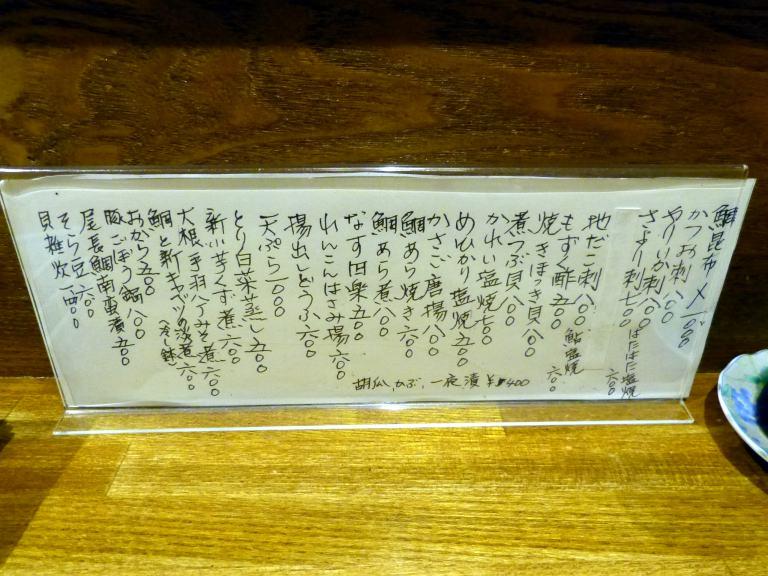 鯛昆布〆 一〇〇〇
かつお刺 八〇〇
やりいか刺 八〇〇
さより刺 七〇〇
はたはた塩焼 六〇〇
地だこ刺 八〇〇
もずく酢 五〇〇
鮎塩焼 六〇〇
焼きほっき貝 八〇〇
煮つぶ貝 八〇〇
かれい塩焼 七〇〇
めひかり塩焼 五〇〇
かさご唐揚 八〇〇
鯛あら焼き 六〇〇
鯛あら煮 八〇〇
なす田楽 五〇〇
れんこんはさみ揚 六〇〇
揚出しどうふ 六〇〇
天ぷら 一〇〇〇
とり白菜蒸し 五〇〇
新小芋くず煮 六〇〇
大根と手羽八丁みそ煮 六〇〇
鯛と新キャベツの浅煮 六〇〇
(冷し鉢)
おから 五〇〇
豚ごぼう鍋 八〇〇
尾長鯛南蛮漬 五〇〇
そら豆 六〇〇
貝雑炊 一四〇〇
胡瓜、かぶ、一夜漬 ¥400